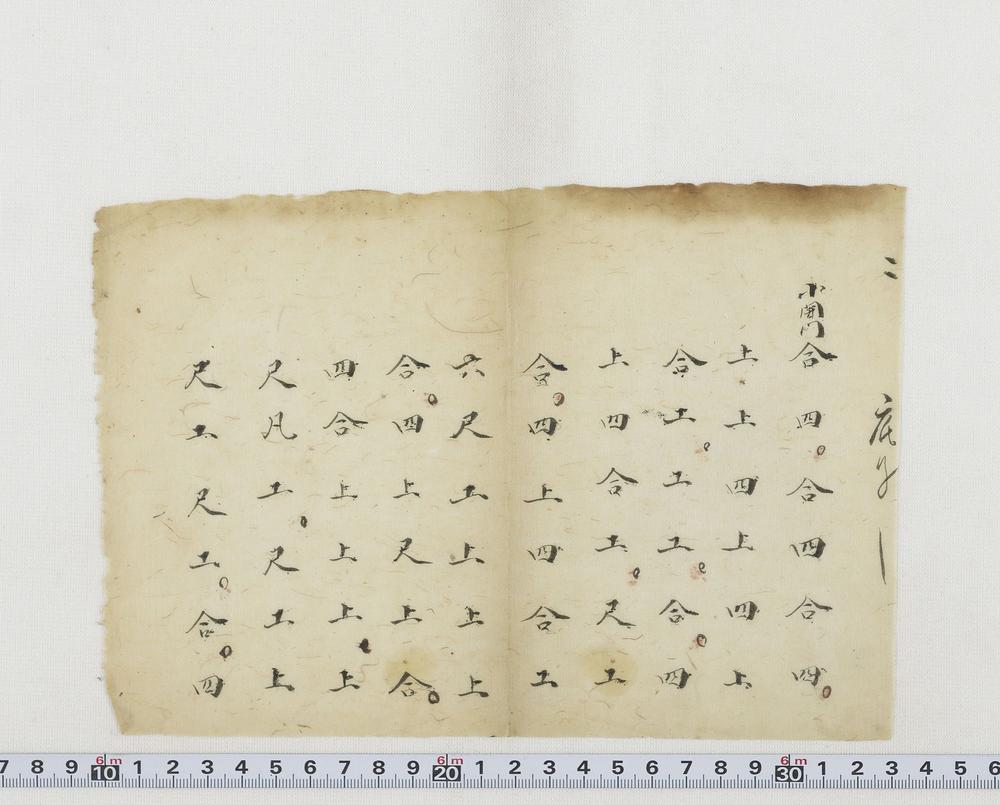 二
底子
小開門
合四。合四合四。
上上四上四上
合工。工工。合。四
上四合工。尺工
合。四上四合工
六尺工上上上
合。四上尺上合。
四合上上上。上
尺凡工。尺工上
尺工尺工。合。四
7 8 9 6m 10 1 2 3 4 5 6 7 8 9 6m 20 1 2 3 4 5 6 7 8 9 6m 30 1 2 3 4 5 6